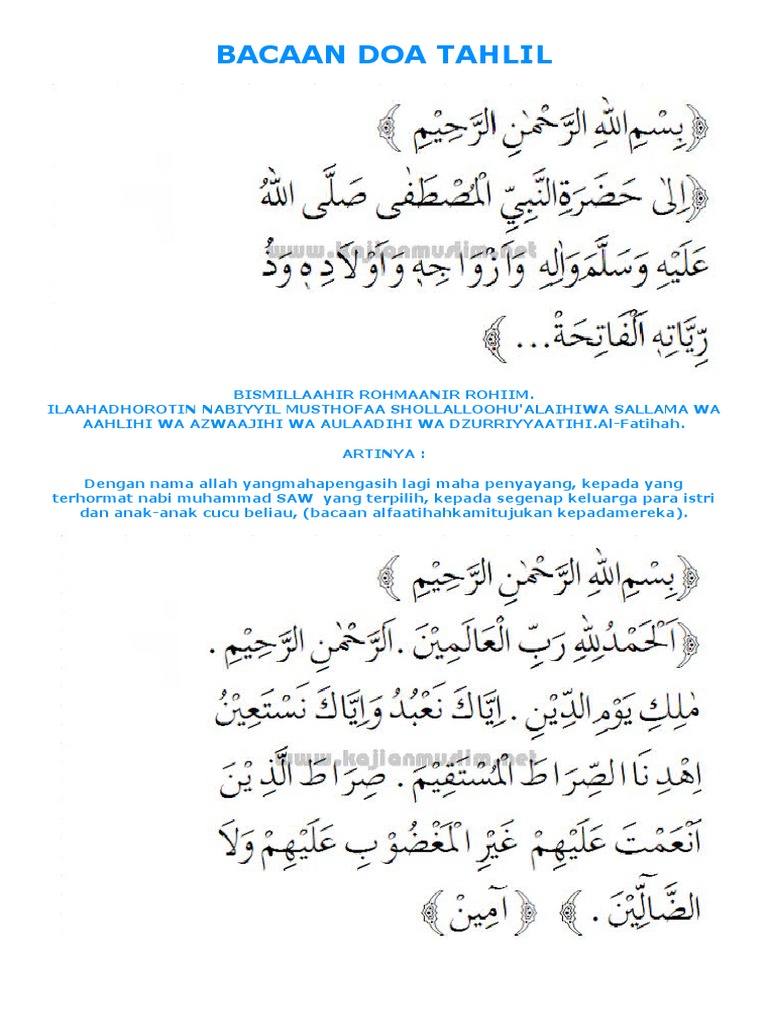 BACAAN DOA TAHLIL
﴿ بِسْمِ اللهِ الرَّحْمٰنِ الرَّحِيْمِ ﴾
﴿ اِلىٰ حَضَرَةِ النَّبِيِّ الْمُصْطَفٰى صَلَّى اللهُ
www.kajianmuslim.net
عَلَيْهِ وَسَلَّمَ وَاٰلِهِ وَاَزْوَاجِهٖ وَاَوْلَادِهٖ وَذُ
رِّيَّاتِهٖ اَلْفَاتِحَةْ... ﴾
BISMILLAAHIR ROHMAANIR ROHIIM.
ILAAHADHOROTIN NABIYYIL MUSTHOFAA SHOLLALLOOHU'ALAIHIWA SALLAMA WA
AAHLIHI WA AZWAAJIHI WA AULAADIHI WA DZURRIYYAATIHI.Al-Fatihah.
ARTINYA :
Dengan nama allah yangmahapengasih lagi maha penyayang, kepada yang
terhormat nabi muhammad SAW yang terpilih, kepada segenap keluarga para istri
dan anak-anak cucu beliau, (bacaan alfaatihahkamitujukan kepadamereka).
﴿ بِسْمِ اللهِ الرَّحْمٰنِ الرَّحِيْمِ ﴾
﴿ اَلْحَمْدُ لِلهِ رَبِّ الْعَالَمِيْنَ . اَلرَّحْمٰنِ الرَّحِيْمِ .
مٰلِكِ يَوْمِ الدِّيْنِ . اِيَّاكَ نَعْبُدُ وَاِيَّاكَ نَسْتَعِيْنُ
www.kajianmuslim.net
اِهْدِنَا الصِّرَاطَ الْمُسْتَقِيْمَ . صِرَاطَ الَّذِيْنَ
اَنْعَمْتَ عَلَيْهِمْ غَيْرِ الْمَغْضُوْبِ عَلَيْهِمْ وَلَا
الضَّآلِّيْنَ . ﴾ ﴿ اٰمِيْنَ ﴾